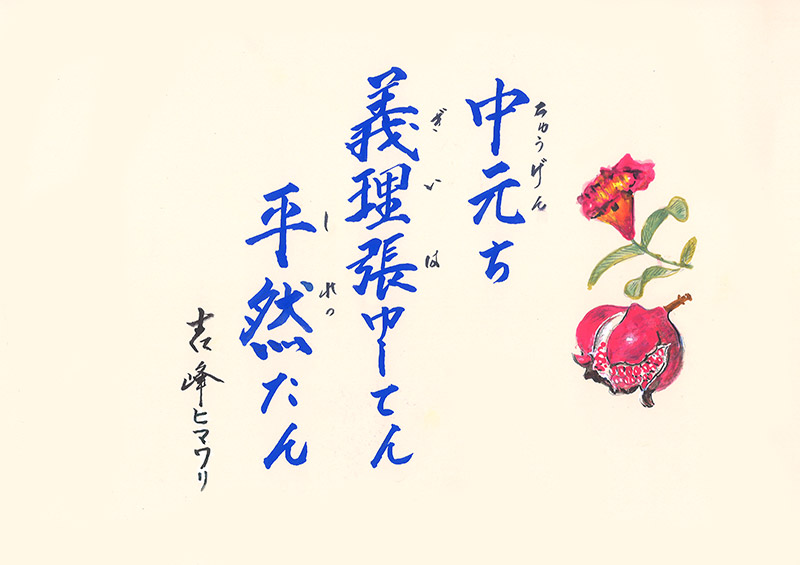 ちゅうげん
中元ち
ぎいは
義理張ゆしてん
しれっ
平然たん
吉峰ヒマワリ